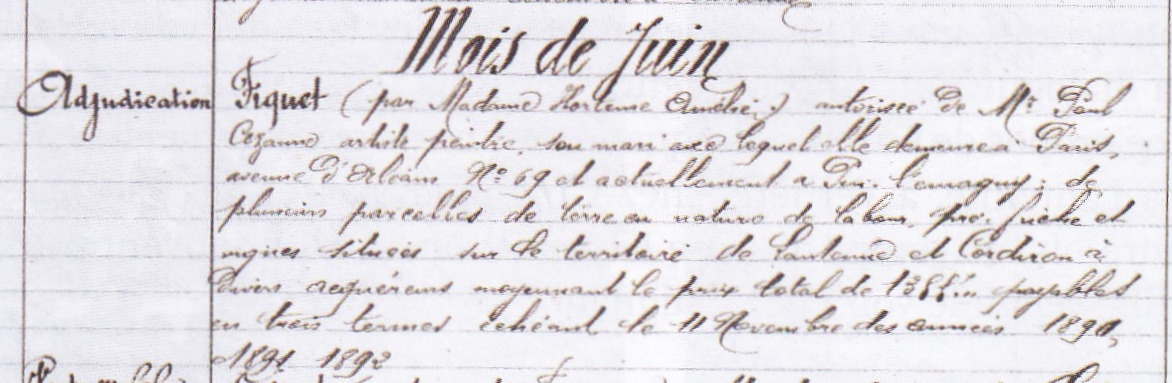 Mois de Juin
Adjudication Fiquet (par Madame Hortense Amélie) autorisée de Mr. Paul
Cézanne artiste peintre, son mari avec lequel elle demeure à Paris,
avenue d'Orléans No. 69 et actuellement a :  de
plusieurs parcelles de terre en nature de labour, pré, friche et
vignes situées sur le territoire de Lantenne et Corcondray à
divers acquéreurs moyennant le prix total de payables
en trois termes échéant le 11 Novembre des années 1890,
1891 1892